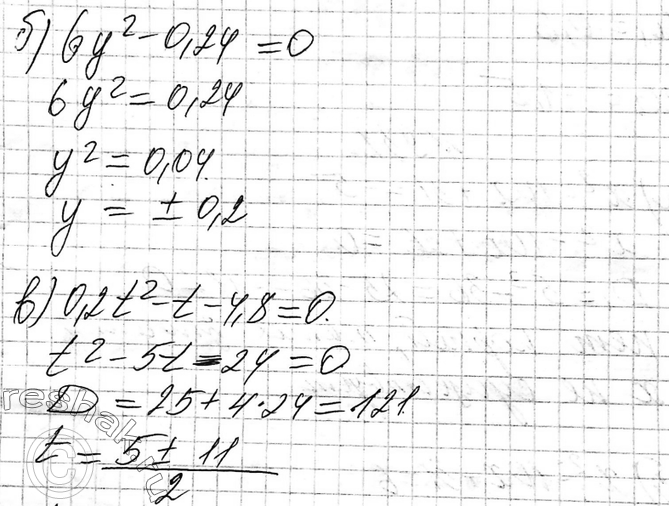 б) 6y² - 0,24 = 0
6y² = 0,24
y² = 0,04
y = ± 0,2
в) 0,2t² - t - 4,8 = 0.
t² - 5t - 24 = 0
D = 25 + 4·24 = 121
t = (5 ± 11)/2
reshak.ru